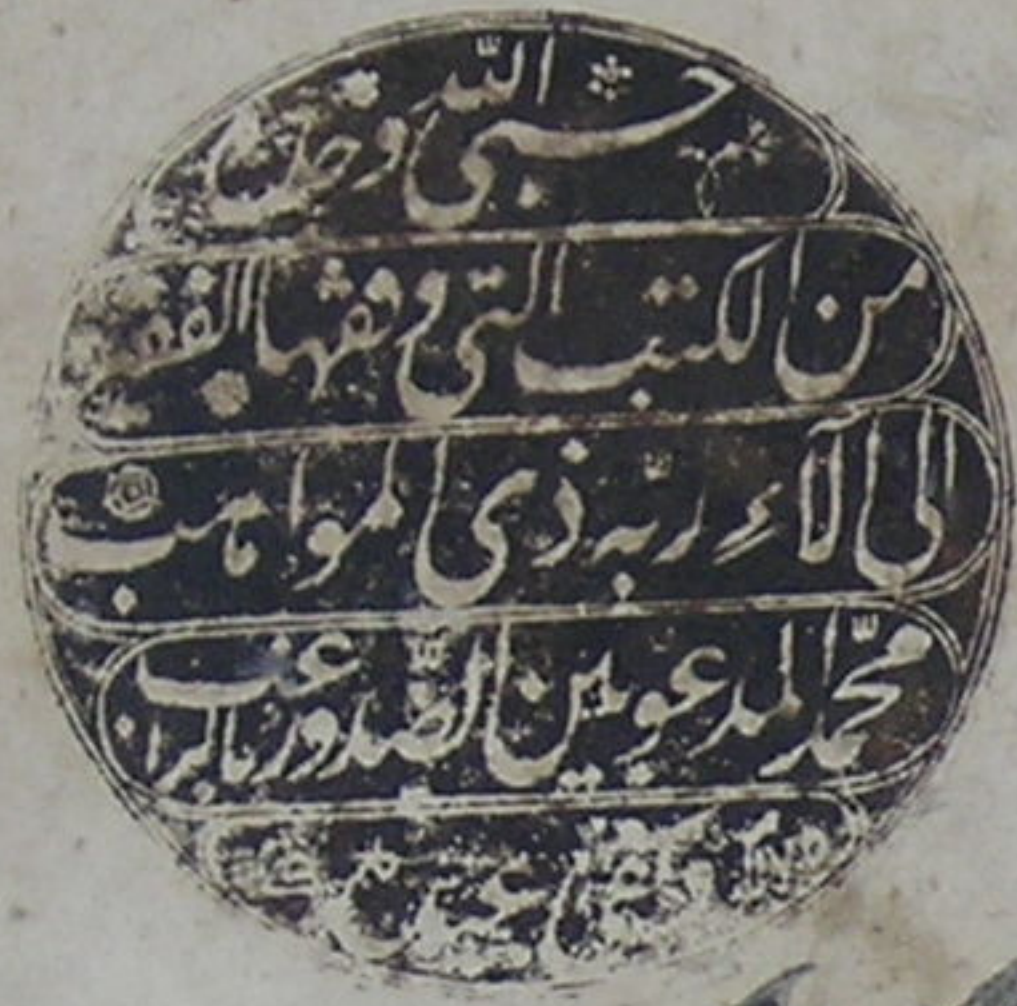 حسبي الله وحده
من الكتب التي وقفها الفقير
الى آلاء ربّه ذي المواهب
محمّد المدعو بين الصدور بالراغب